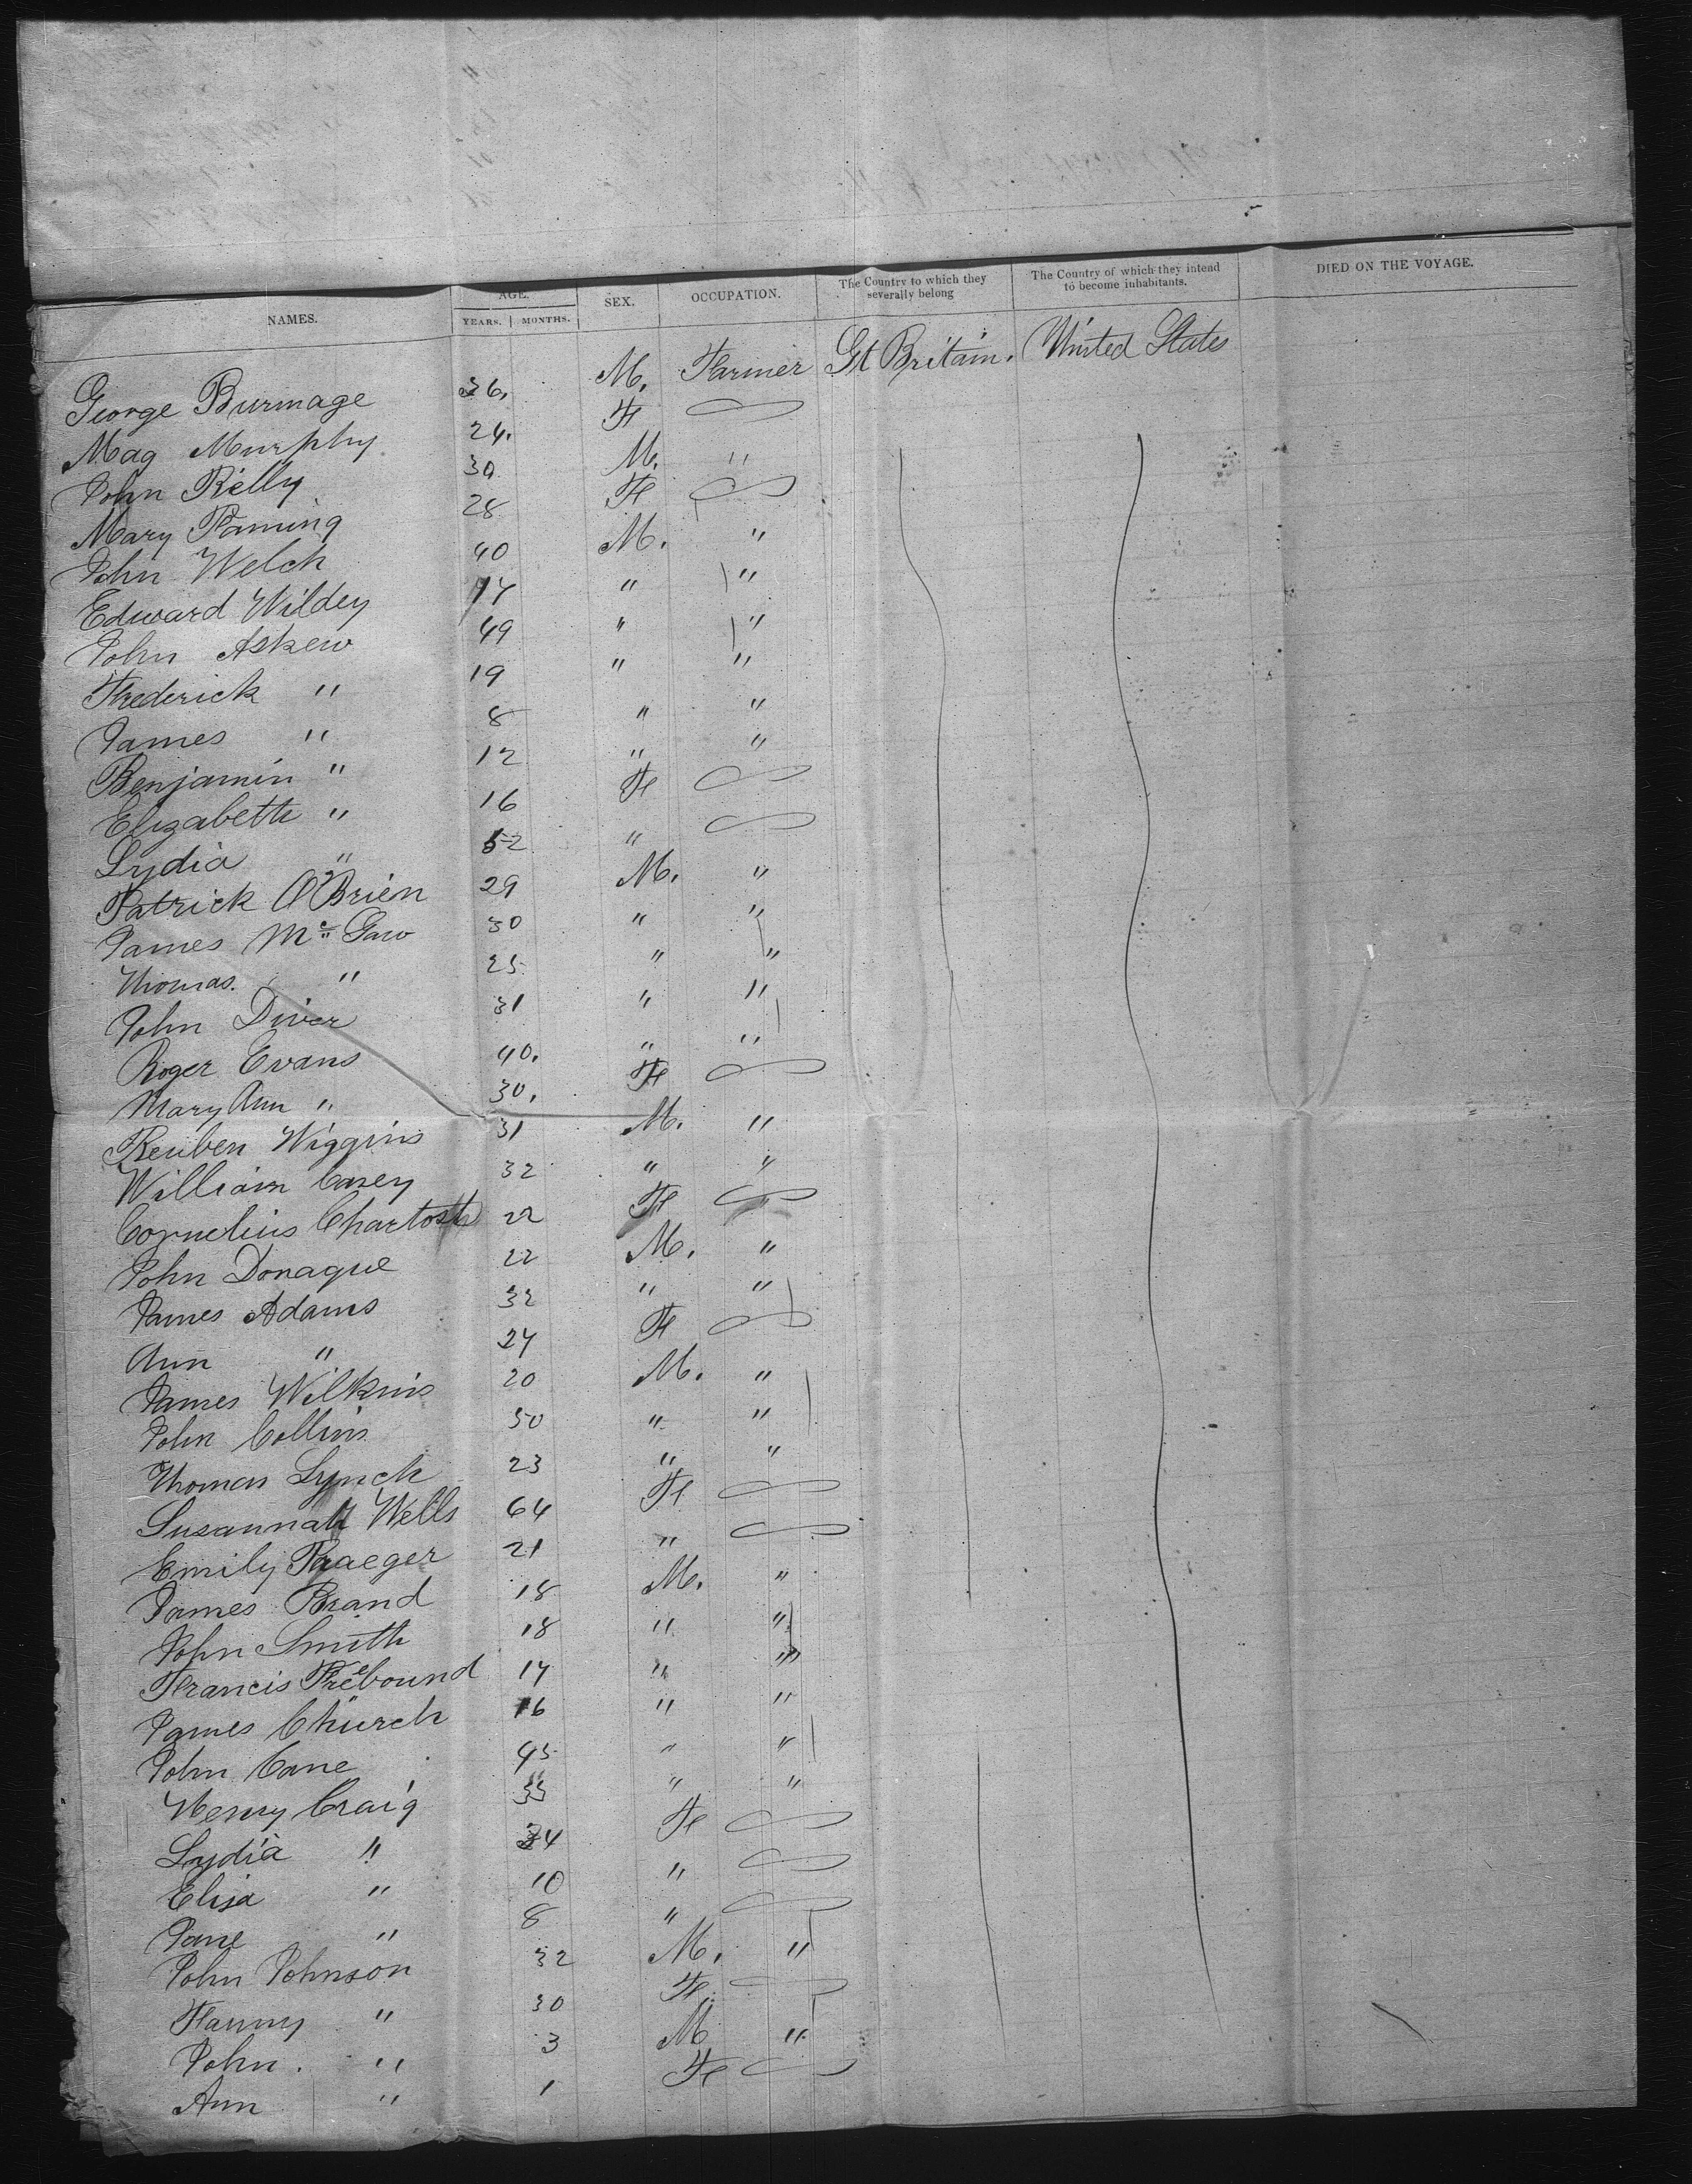 NAMES. AGE. YEARS. MONTHS. SEX. OCCUPATION. The Country to which they severally belong The Country of which they intend to become inhabitants. DIED ON THE VOYAGE.
George Burmage 36. M. Farmer Gt Britain. United States
Mag Murphy 24. Fe
John Rielly 30 M. "
Mary Faming 28 Fe
John Welch 40 M. "
Edward Wildey 14 " "
John Askew 49 " "
Frederick " 19 " "
James " 8 " "
Benjamin " 12 " "
Elizabeth " 16 Fe
Lydia " 52 "
Patrick O'Brien 29 M. "
James Mc Gaw 30 " "
Thomas. " 25 " "
John Diver 31 " "
Roger Evans 40. " "
Mary Ann " 30. Fe
Reuben Wiggins 31 M. "
William Casey 32 " "
Cornelius 22 Fe
John Donague 22 M. "
James Adams 32 " "
Ann " 24 Fe
James Wilkins 20 M. "
John Collins 50 " "
Thomas Lynch 23 " "
Susannah Wells 64 Fe
Emily Praeger 21 "
James Brand 18 M. "
John Smith 18 " "
Francis Freebound 17 " "
James Church 16 " "
John Cane 45 " "
Henry Craig 33 " "
Lydia " 34 Fe
Eliza " 10 "
Jane " 8 "
John Johnson 32 M. "
Fanny " 30 Fe
John. " 3 M "
Ann " 1 Fe